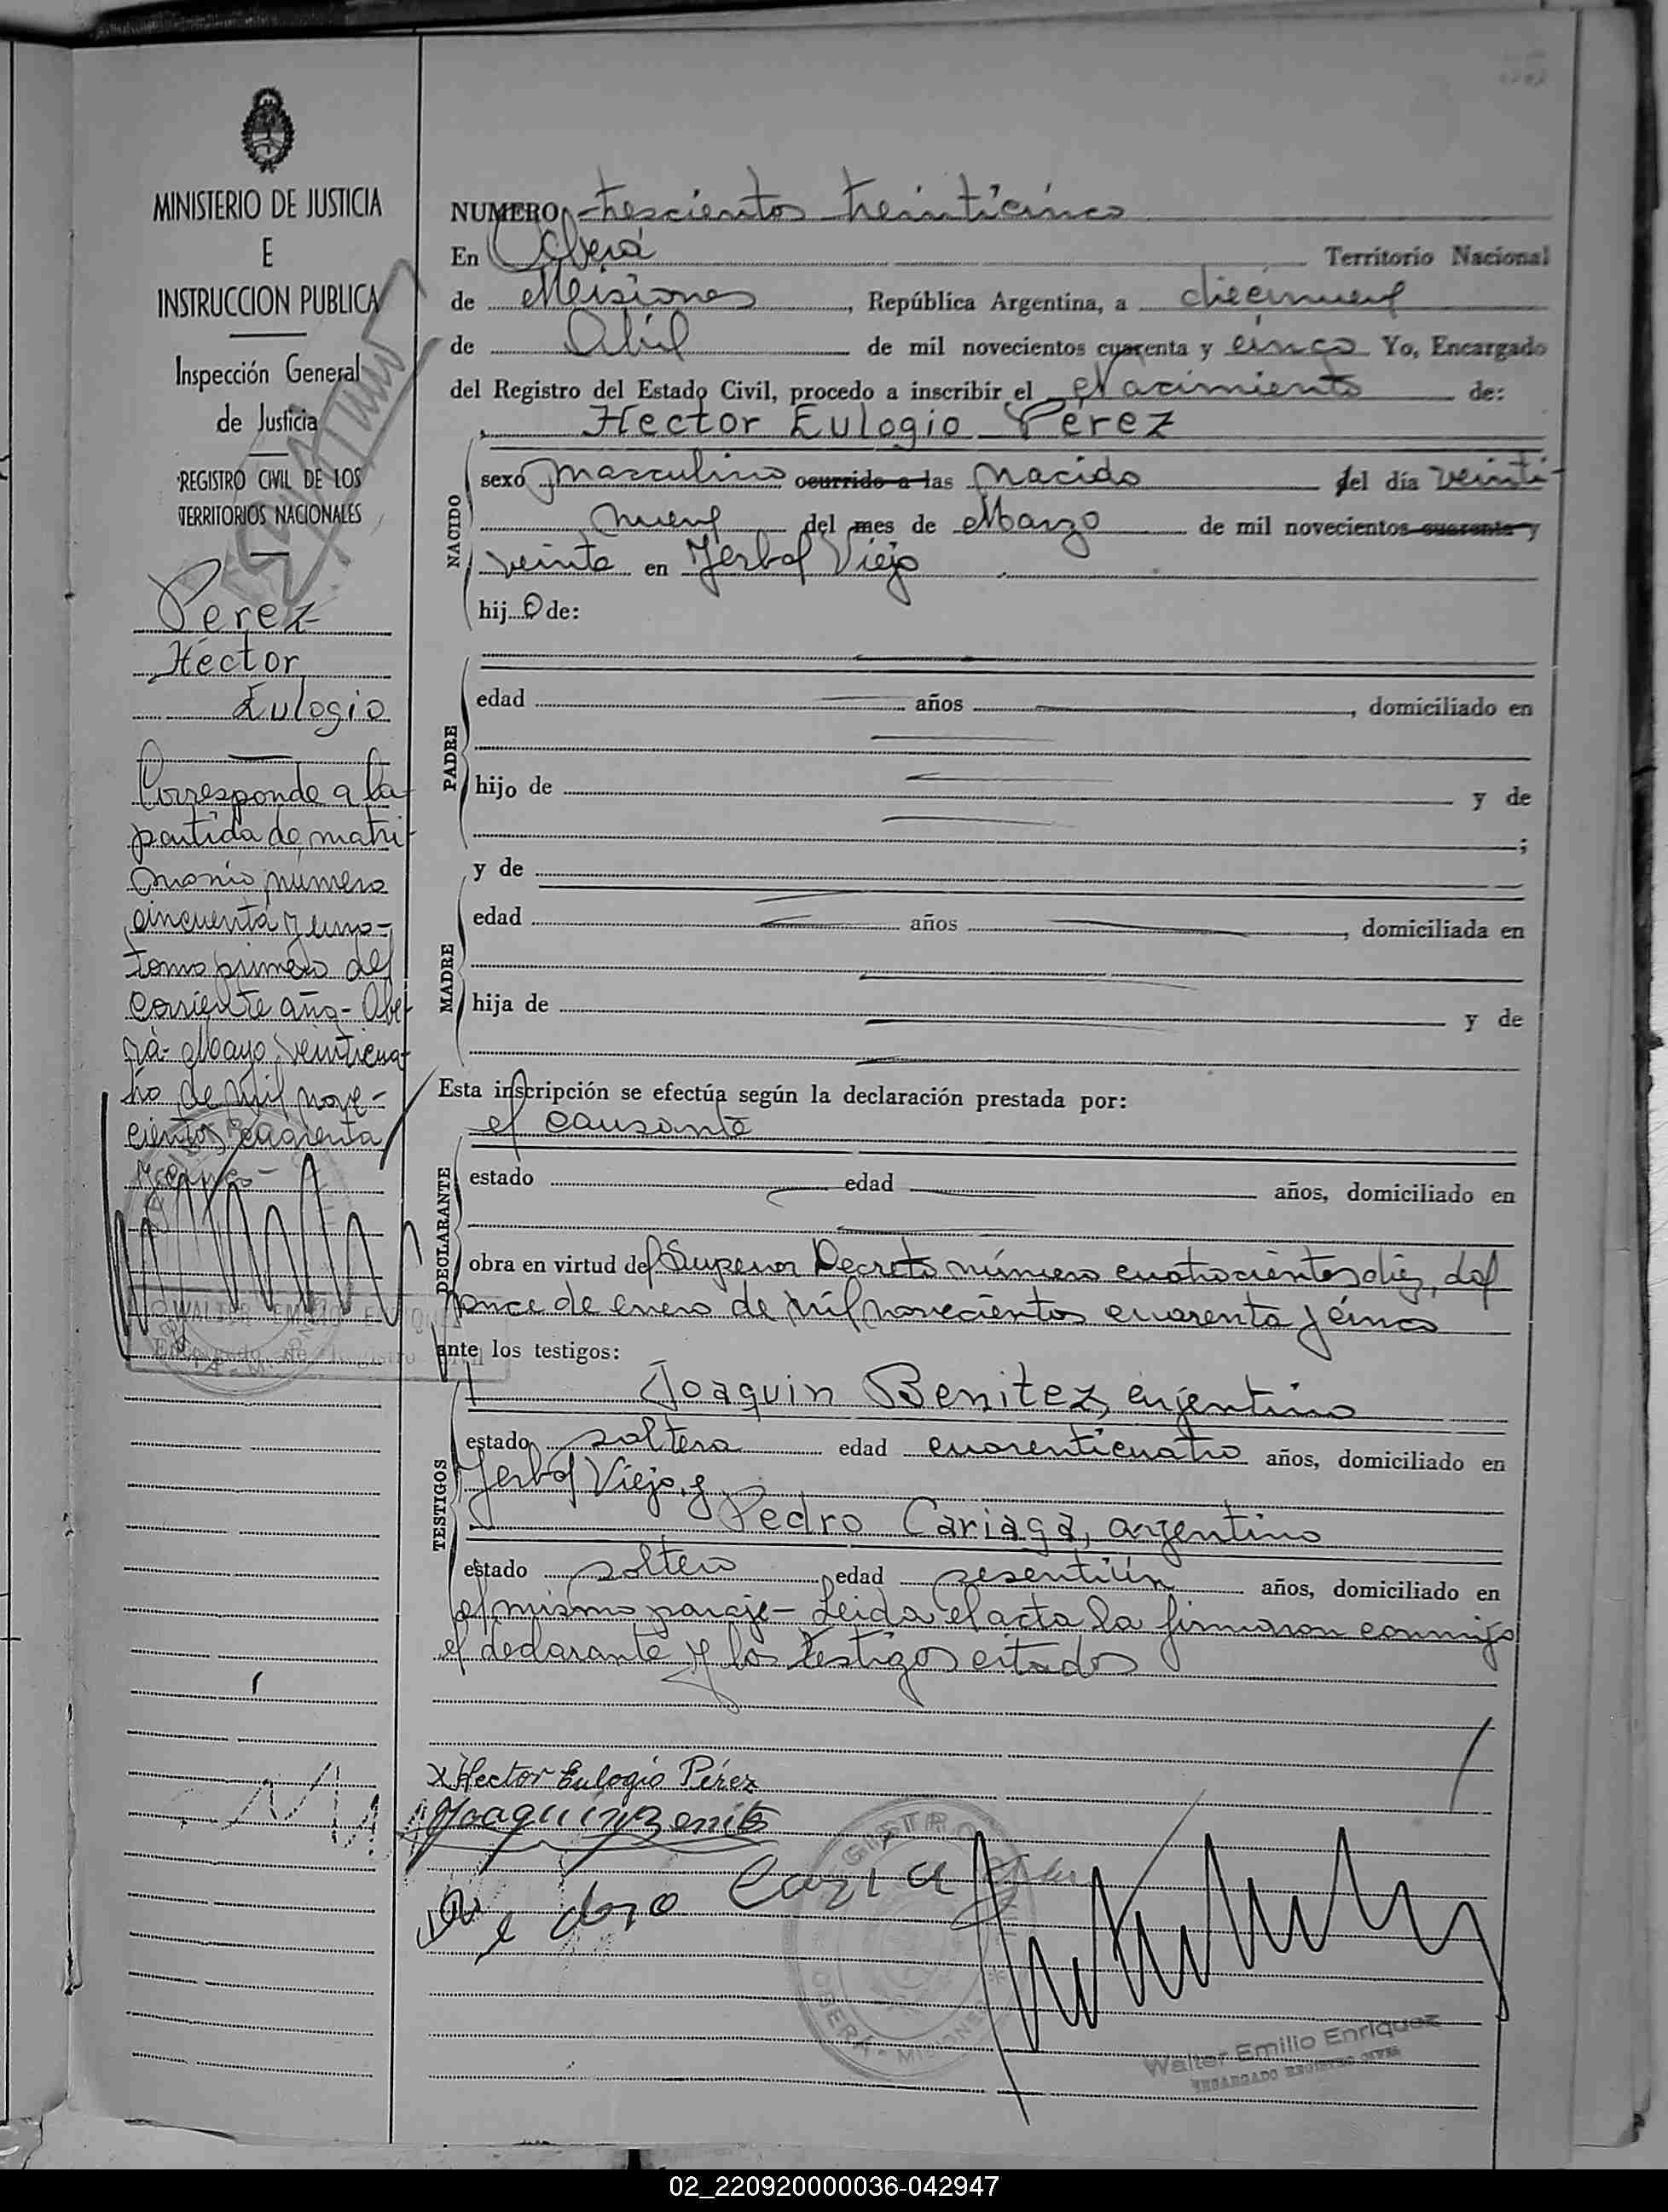 MINISTERIO DE JUSTICIA
E
INSTRUCCION PUBLICA
Inspección General
de Justicia
REGISTRO CIVIL DE LOS
TERRITORIOS NACIONALES
Perez
Héctor
Eulogio
Corresponde a la
partida de matri-
monio numero
cincuenta y uno-
tomo primero del
corriente año- Obe-
rá- Mayo veinticua-
tro de mil nove-
cientos cuarenta
y cinco-
NUMERO trescientos treinticinco
En Oberá Territorio Nacional
de Misiones, República Argentina, a diecinueve
de Abril de mil novecientos cuarenta y cinco Yo, Encargado
del Registro del Estado Civil, procedo a inscribir el Nacimiento de:
Hector Eulogio Perez
NACIDO
sexo masculino ocurrido a las nacido del día veinti-
nueve del mes de Marzo de mil novecientos cuarenta y
veinte en Yerbal Viejo
hij o de:
PADRE
edad años , domiciliado en
hijo de y de
;
y de
MADRE
edad años , domiciliada en
hija de y de
Esta inscripción se efectúa según la declaración prestada por:
el causante
DECLARANTE
estado edad años, domiciliado en
obra en virtud del Superior Decreto número cuatrocientos diez, del
once de enero de mil novecientos cuarenta y cinco
ante los testigos:
TESTIGOS
Joaquin Benitez, argentino
estado soltero edad cuarenticuatro años, domiciliado en
Yerbal Viejo y
Pedro Cariaga, argentino
estado soltero edad sesentiún años, domiciliado en
el mismo paraje- Leida el acta la firmaron conmigo
el declarante y los testigos citados
x Hector Eulogio Pérez
Joaquin Benitez
Pedro Caria
REGISTRO
OBERÁ - MISIONES
Walter Emilio Enriquez
ENCARGADO REGISTRO CIVIL
02_220920000036-042947